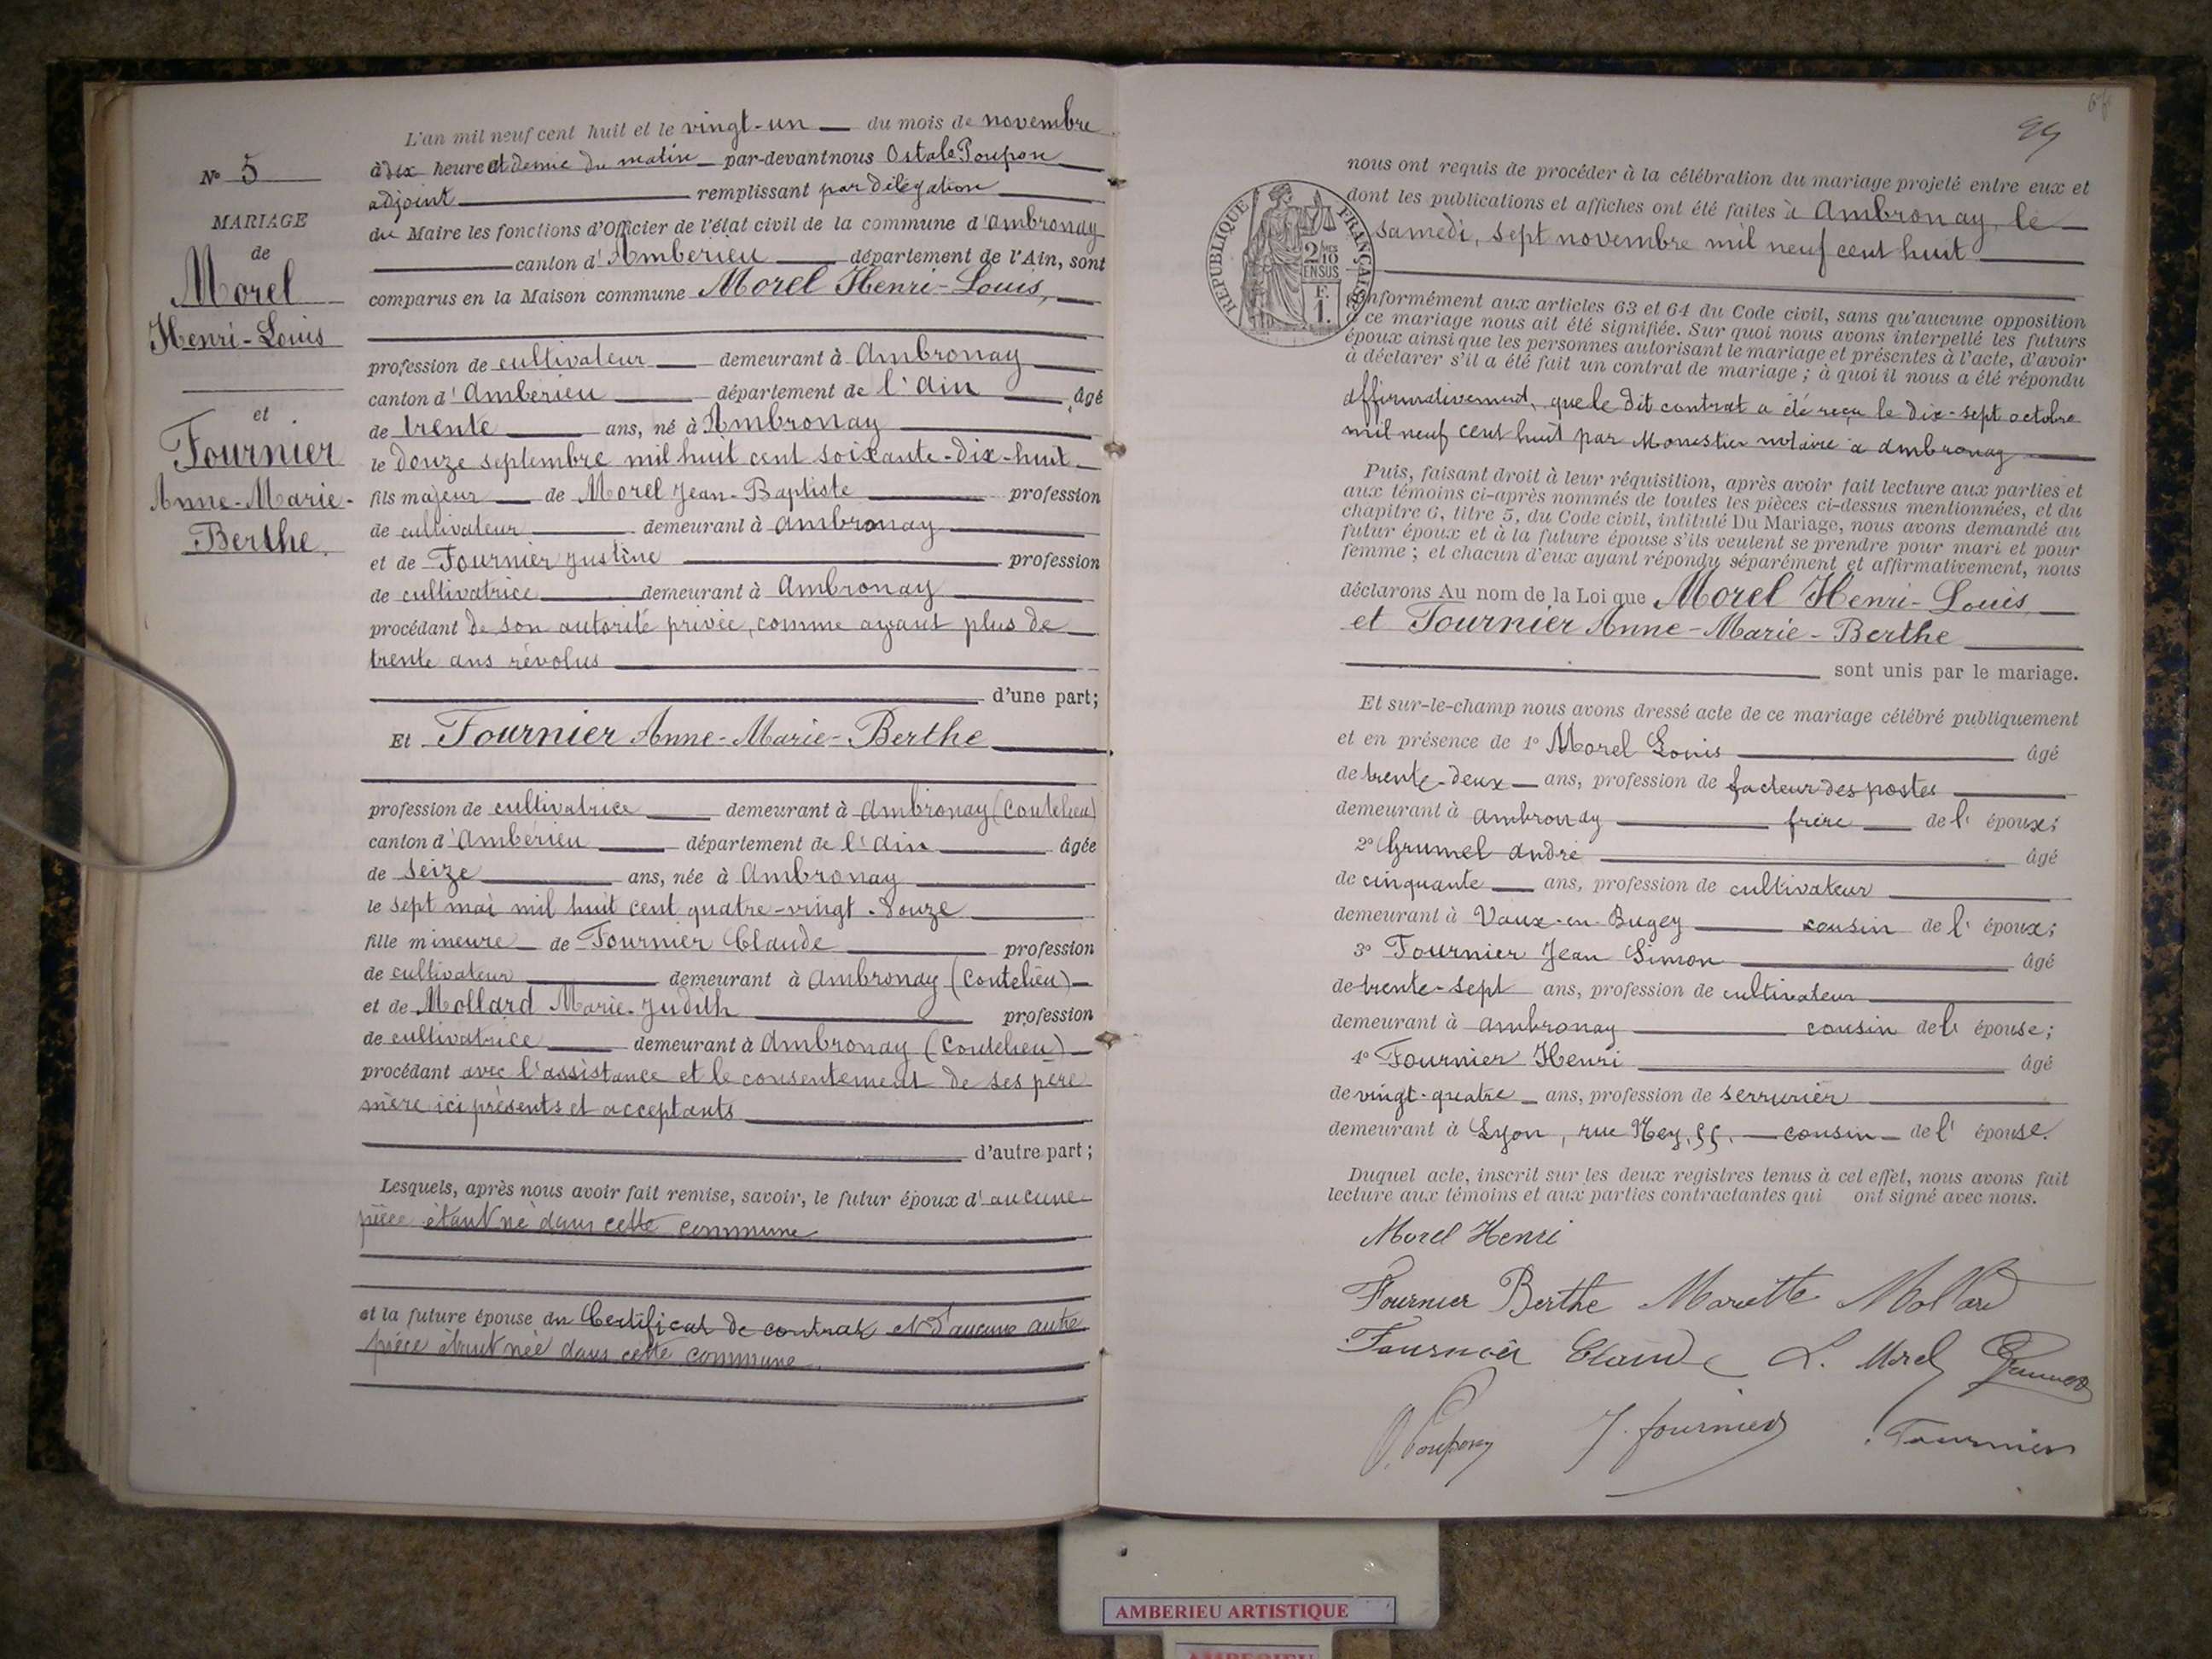 N° 5
MARIAGE
de
Morel
Henri-Louis
et
Fournier
Anne-Marie-
Berthe.
L'an mil neuf cent huit et le vingt-un du mois de novembre
à dix heure et demie du matin par-devant nous Ostale Poupon
adjoint remplissant par délégation
du Maire les fonctions d'Officier de l'état civil de la commune d'Ambronay
canton d'Ambérieu département de l'Ain, sont
comparus en la Maison commune Morel Henri-Louis,
profession de cultivateur demeurant à Ambronay
canton d'Ambérieu département de l'Ain âgé
de trente ans, né à Ambronay
le douze septembre mil huit cent soixante-dix-huit
fils majeur de Morel Jean-Baptiste profession
de cultivateur demeurant à Ambronay
et de Fournier Justine profession
de cultivatrice demeurant à Ambronay
procédant de son autorité privée, comme ayant plus de
trente ans révolus
d'une part;
Et Fournier Anne-Marie-Berthe
profession de cultivatrice demeurant à Ambronay (Coutelieu)
canton d'Ambérieu département de l'Ain âgée
de seize ans, née à Ambronay
le sept mai mil huit cent quatre-vingt-douze
fille mineure de Fournier Claude profession
de cultivateur demeurant à Ambronay (Coutelieu)
et de Mollard Marie-Judith profession
de cultivatrice demeurant à Ambronay (Coutelieu)
procédant avec l'assistance et le consentement de ses père
mère ici présents et acceptants
d'autre part;
Lesquels, après nous avoir fait remise, savoir, le futur époux d'aucune
pièce étant né dans cette commune
et la future épouse du Certificat de contrat et d'aucune autre
pièce étant née dans cette commune.
99
REPUBLIQUE FRANÇAISE
2/10 EN SUS
F.
1.
nous ont requis de procéder à la célébration du mariage projeté entre eux et
dont les publications et affiches ont été faites à Ambronay, le
samedi, sept novembre mil neuf cent huit
conformément aux articles 63 et 64 du Code civil, sans qu'aucune opposition
à ce mariage nous ait été signifiée. Sur quoi nous avons interpellé les futurs
époux ainsi que les personnes autorisant le mariage et présentes à l'acte, d'avoir
à déclarer s'il a été fait un contrat de mariage; à quoi il nous a été répondu
affirmativement, que le dit contrat a été reçu le dix-sept octobre
mil neuf cent huit par Monestier notaire à Ambronay
Puis, faisant droit à leur réquisition, après avoir fait lecture aux parties et
aux témoins ci-après nommés de toutes les pièces ci-dessus mentionnées, et du
chapitre 6, titre 5, du Code civil, intitulé Du Mariage, nous avons demandé au
futur époux et à la future épouse s'ils veulent se prendre pour mari et pour
femme; et chacun d'eux ayant répondu séparément et affirmativement, nous
déclarons Au nom de la Loi que Morel Henri-Louis
et Fournier Anne-Marie-Berthe
sont unis par le mariage.
Et sur-le-champ nous avons dressé acte de ce mariage célébré publiquement
et en présence de 1° Morel Louis âgé
de trente-deux ans, profession de facteur des postes
demeurant à Ambronay frère de l'époux;
2° Grumel André âgé
de cinquante ans, profession de cultivateur
demeurant à Vaux-en-Bugey cousin de l'époux;
3° Fournier Jean Simon âgé
de trente-sept ans, profession de cultivateur
demeurant à Ambronay cousin de l'épouse;
4° Fournier Henri âgé
de vingt-quatre ans, profession de serrurier
demeurant à Lyon, rue Ney, 55, cousin de l'épouse.
Duquel acte, inscrit sur les deux registres tenus à cet effet, nous avons fait
lecture aux témoins et aux parties contractantes qui ont signé avec nous.
Morel Henri
Fournier Berthe Mariette Mollard
Fournier Claude L. Morel
O. Poupon J. fournier Fournier
AMBERIEU ARTISTIQUE
AMBERIEU